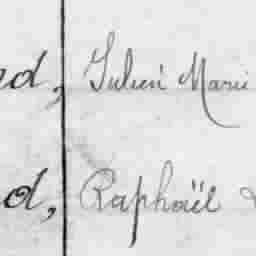 ed, Julien Marie
d, Raphaël